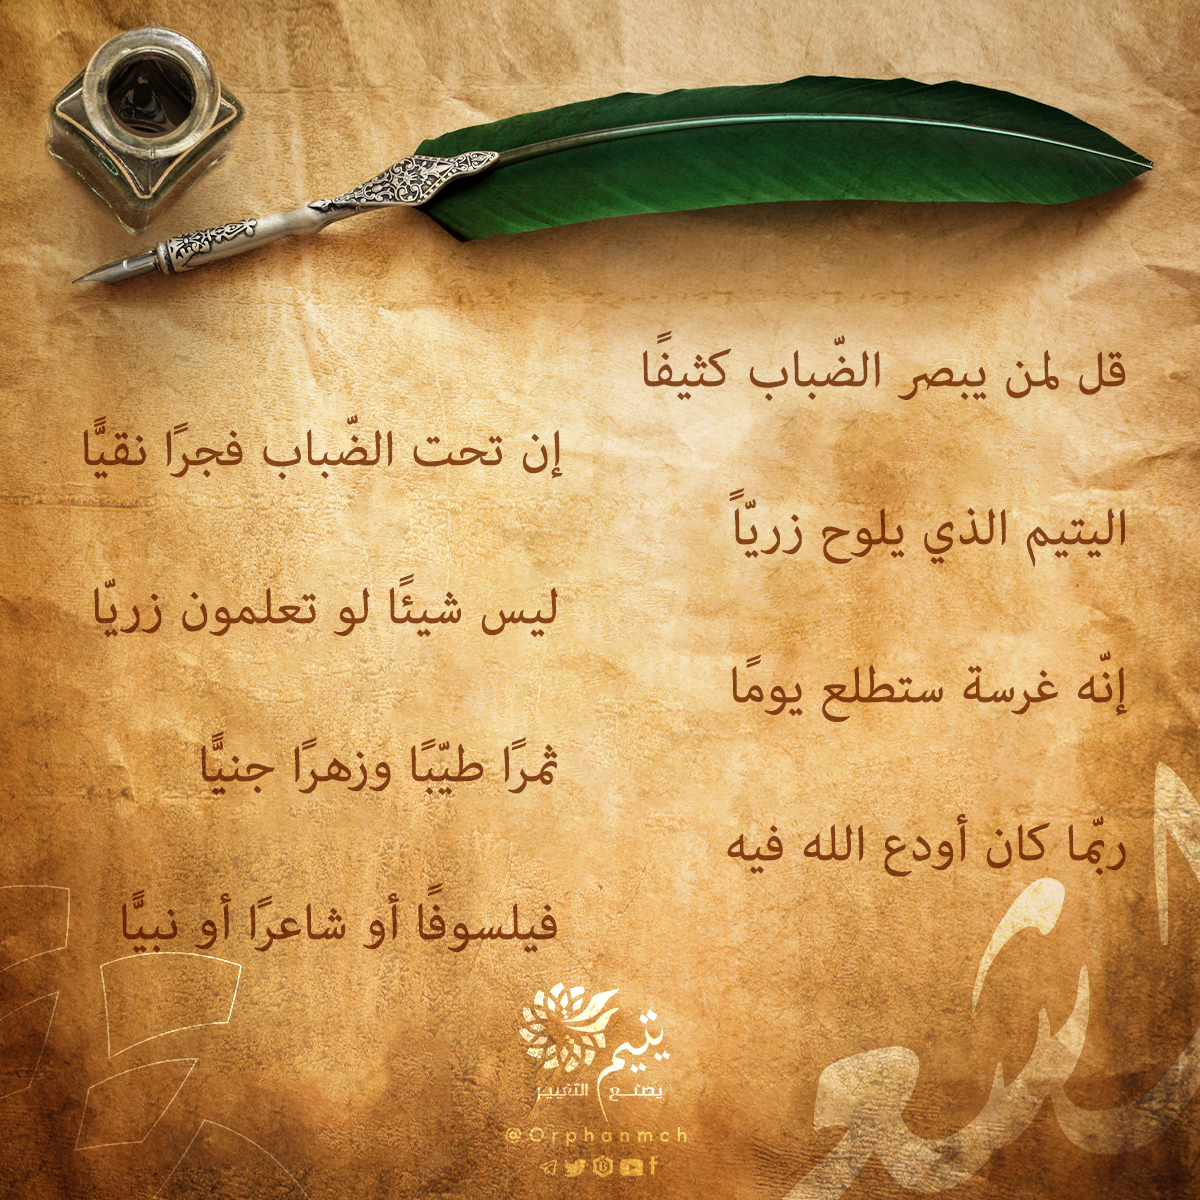 قل لمن يبصر الضّباب كثيفًا
إن تحت الضّباب فجرًا نقيًّا
اليتيم الذي يلوح زريّاً
ليس شيئًا لو تعلمون زريّا
إنّه غرسة ستطلع يومًا
ثمرًا طيّبًا وزهرًا جنيًّا
ربّما كان أودع الله فيه
فيلسوفًا أو شاعرًا أو نبيًّا
يتيم
يصنع التغيير
@Orphanmch